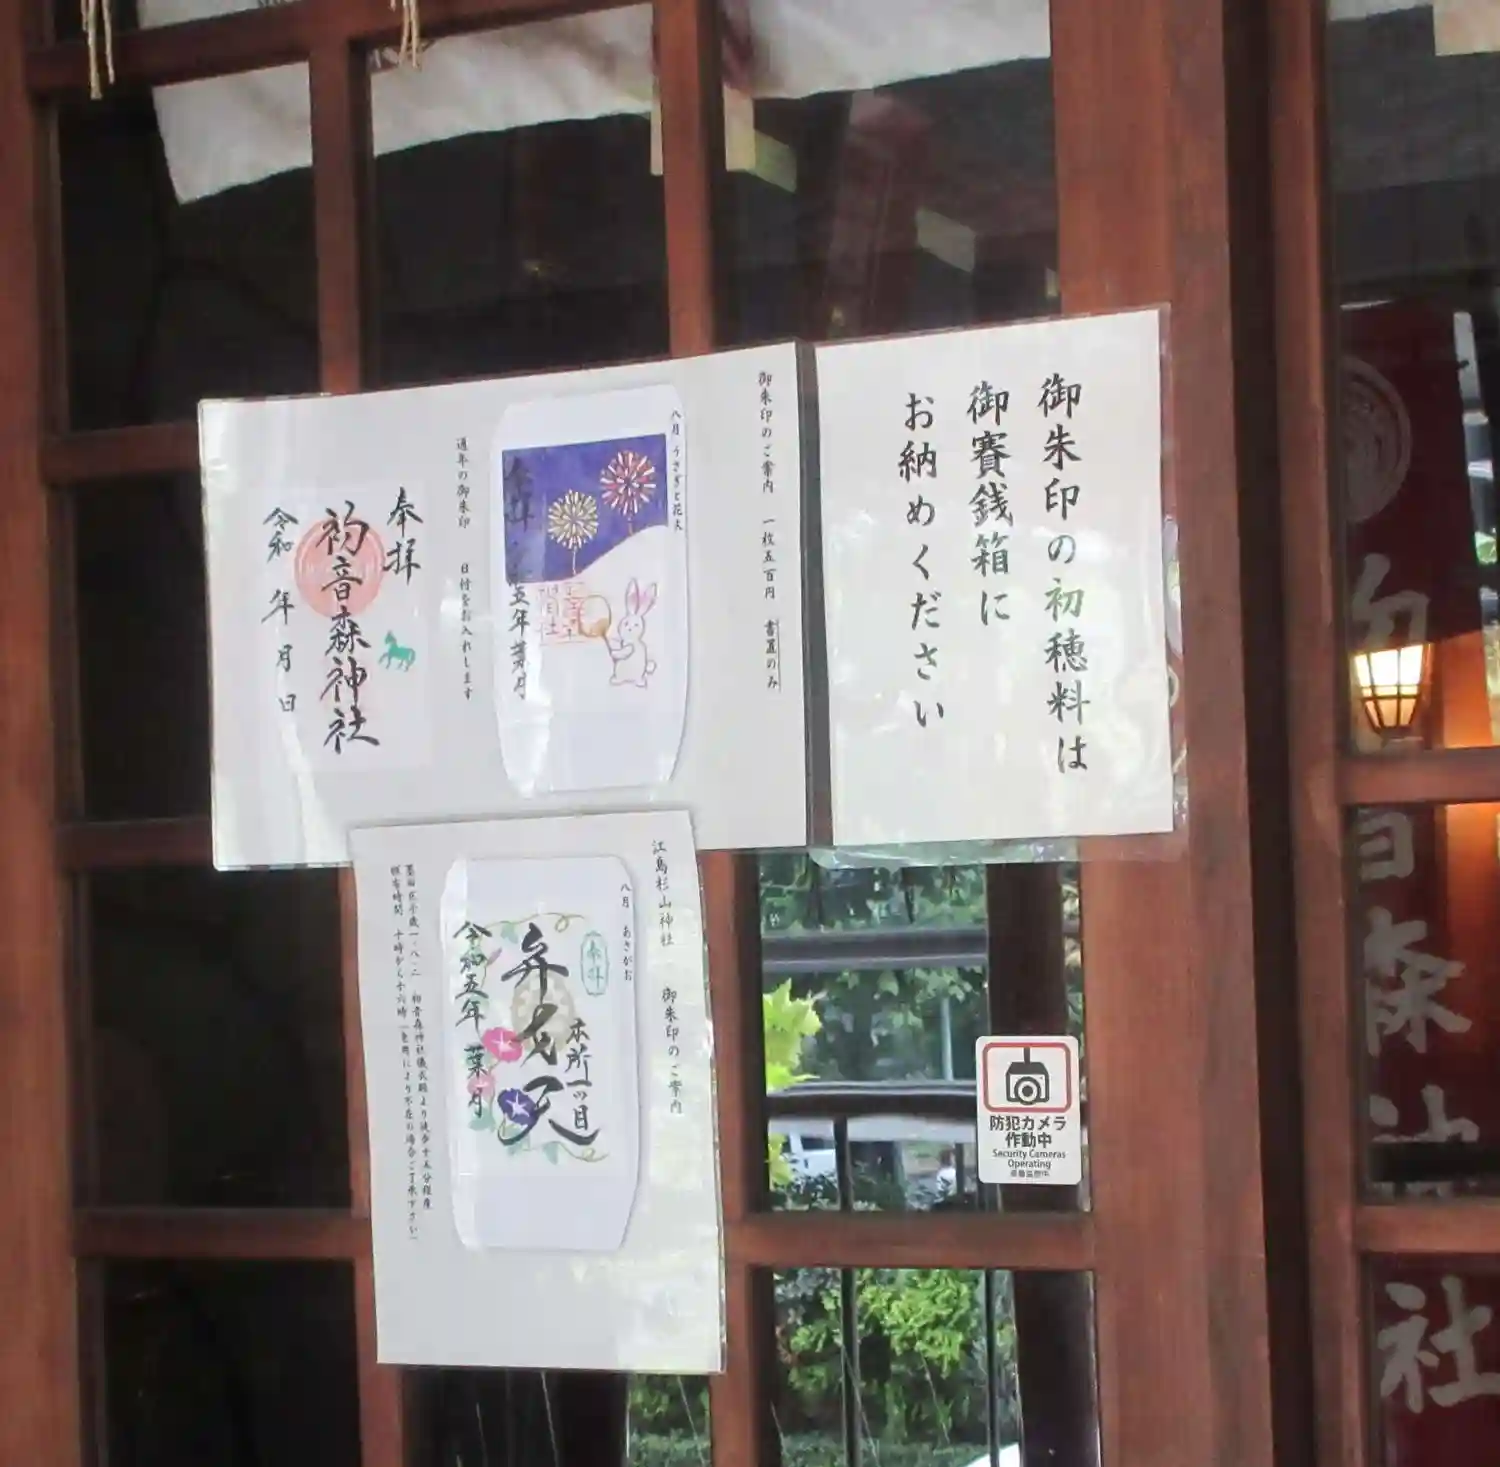 御朱印の初穂料は
御賽銭箱に
お納めください
御朱印のご案内　一枚五百円　書置のみ
八月　うさぎと花火
奉拝
五年葉月
通年の御朱印　日付をお入れします
奉拝
初音森神社
令和　年　月　日
江島杉山神社　御朱印のご案内
八月　あさがお
奉拝
本所一ツ目
弁才天
令和五年　葉月
墨田区千歳一-八-二　初音森神社儀式殿より徒歩十五分程度
頒布時間　十時から十六時（急用により不在の場合ご了承下さい）
防犯カメラ
作動中
Security Cameras
Operating
初音森神社